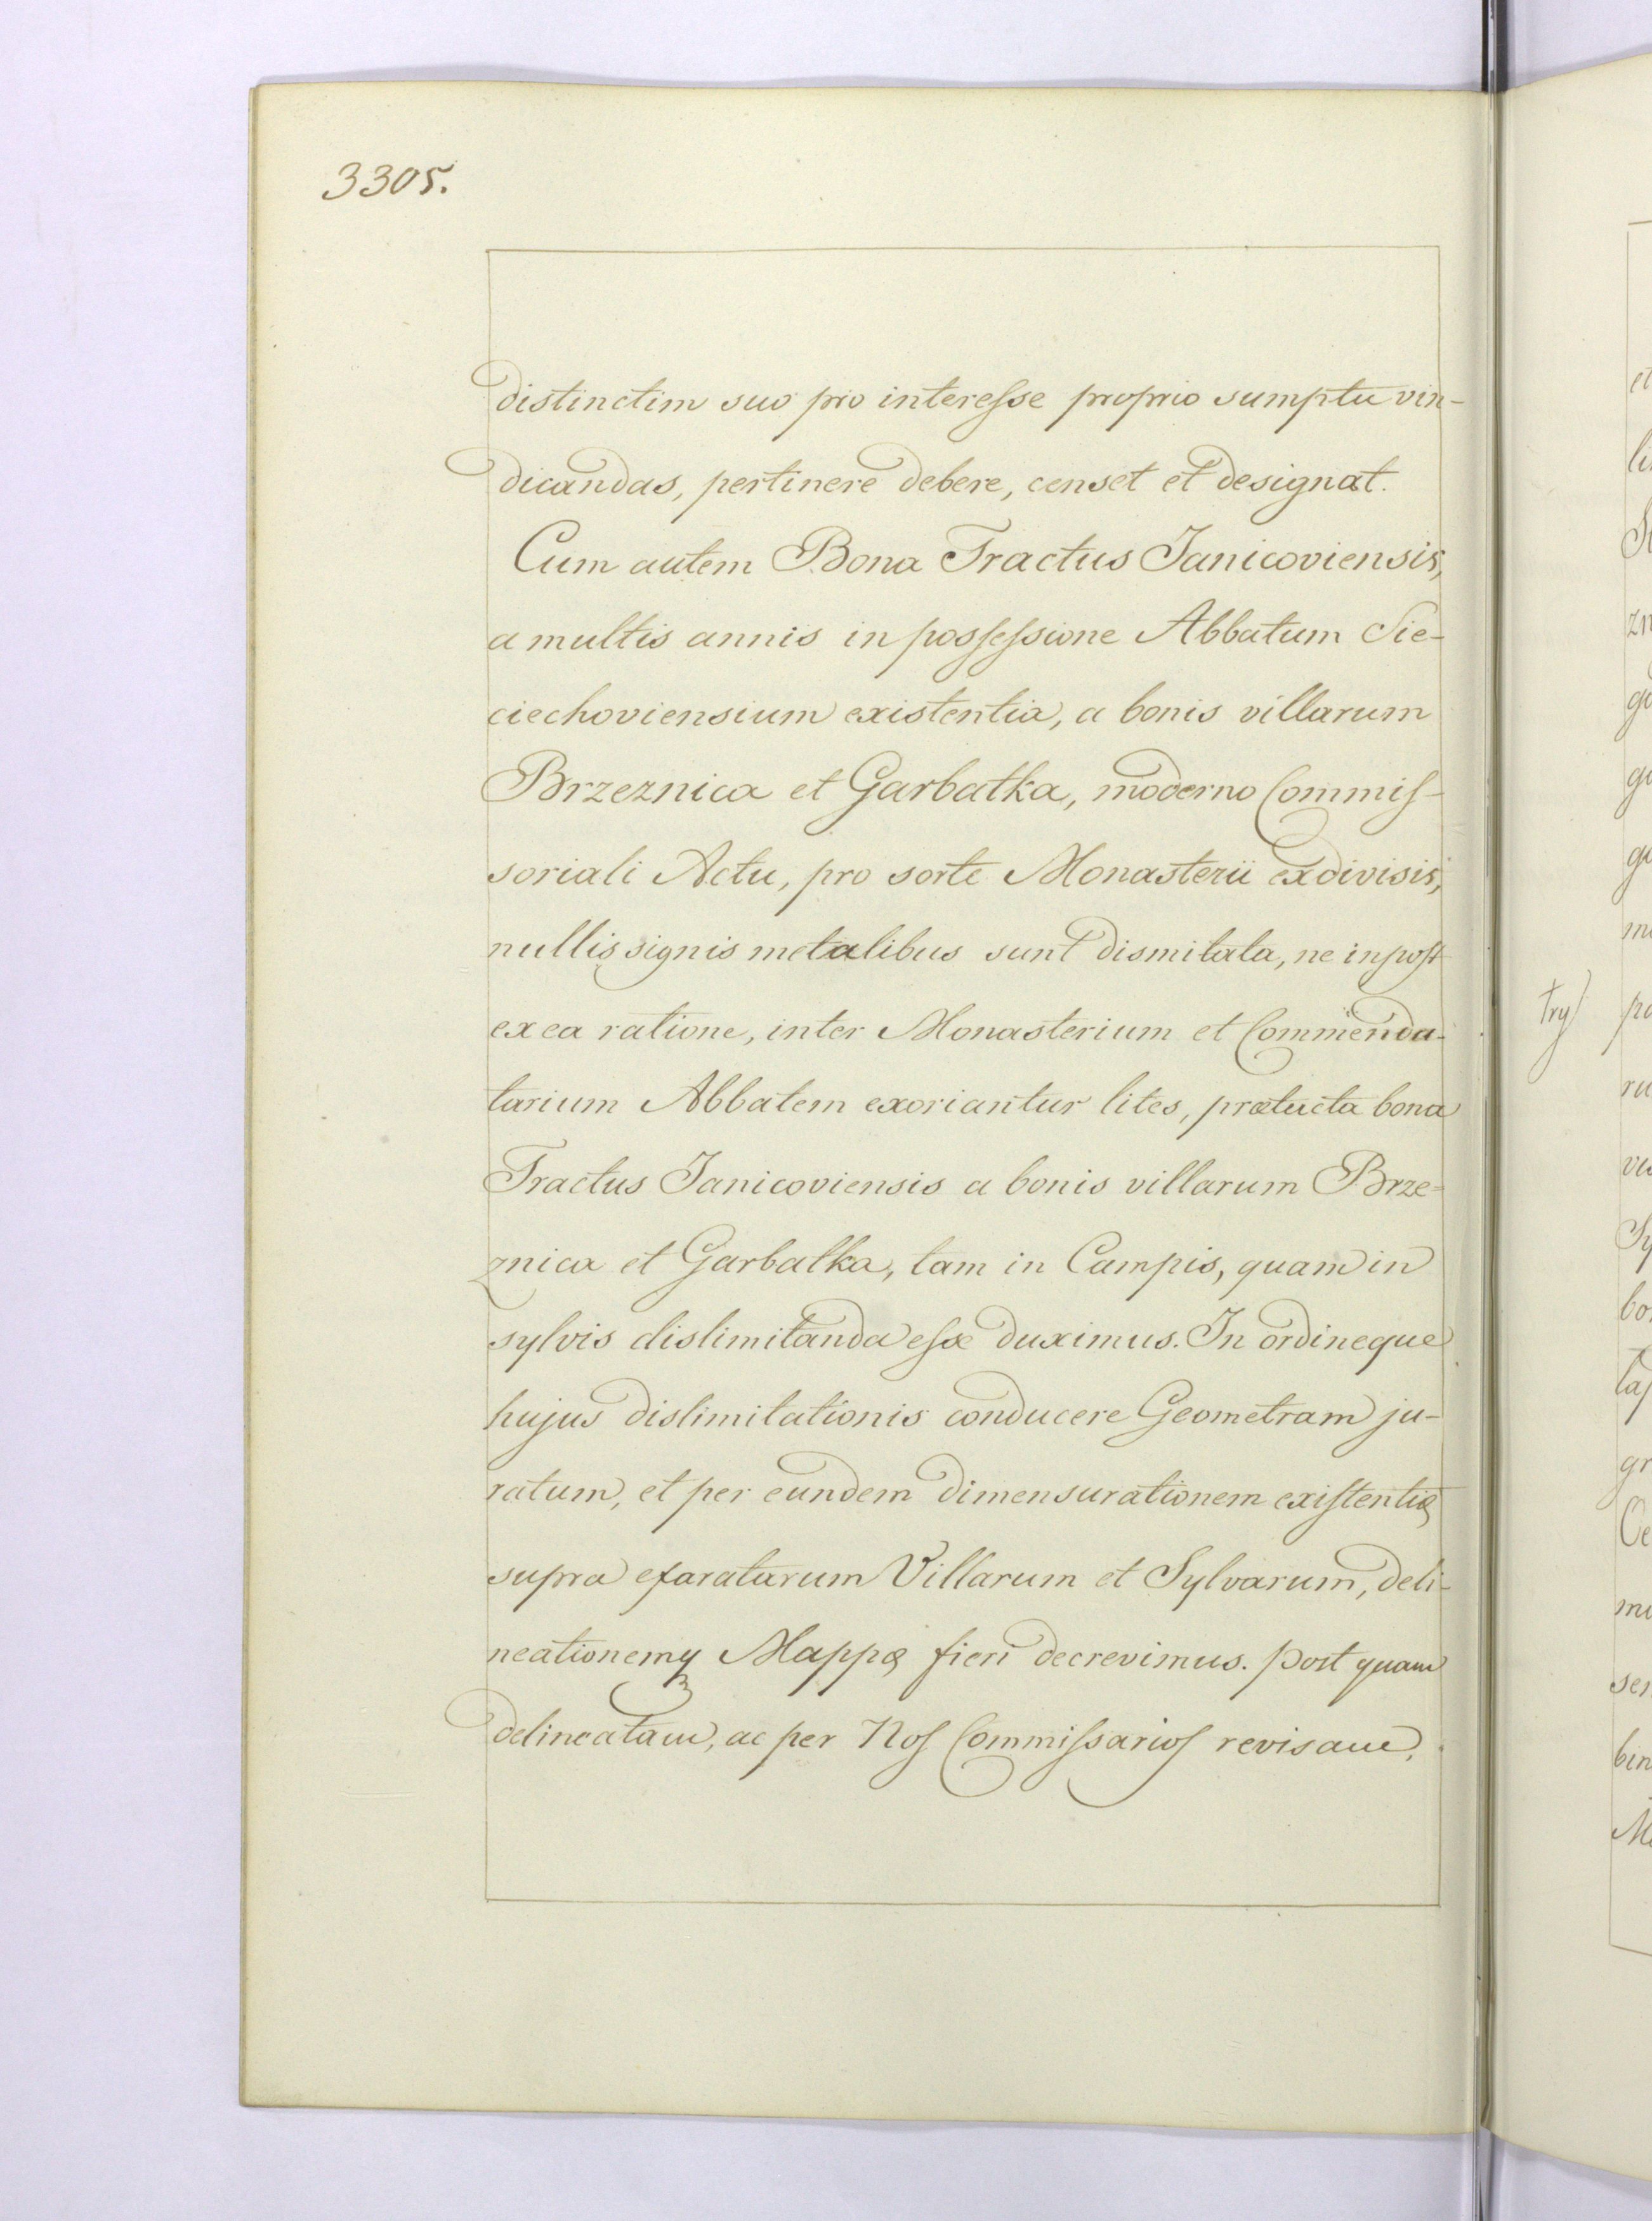 3305.
distinctim suo pro interesse proprio sumptu vin-
dicandas, pertinere debere, censet et designat.
Cum autem Bona Tractus Janicoviensis,
a multis annis in possessione Abbatum Sie-
ciechoviensium existentia, a bonis villarum
Brzeznica et Garbatka, moderno Commis-
soriali Actu, pro sorte Monasterii exdivisis,
nullis signis metalibus sunt dismitata, ne inpost
ex ea ratione, inter Monasterium et Commenda-
tarium Abbatem exoriantur lites, prætacta bona
Tractus Janicoviensis a bonis villarum Brze=
znica et Garbatka, tam in Campis, quam in
sylvis dislimitanda esse duximus. In ordineque
hujus dislimitationis conducere Geometram ju-
ratum, et per eundem dimensurationem existentię
supra exaratarum Villarum et Sylvarum, deli-
neationemq Mappę fieri decrevimus. post quam
delineatam, ac per Nos Commissarios revisam,
try